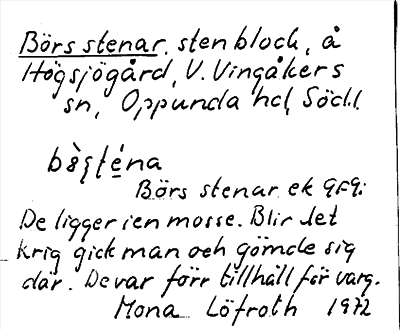 Börs stenar, stenblock, å
Högsjögård, V. Vingåkers
sn, Oppunda hd, Södl.
Börs stenar ek 9F9:
De ligger i en mosse. Blir det
krig gick man och gömde sig
där. De var förr tillhåll för varg.
Mona Löfroth 1972